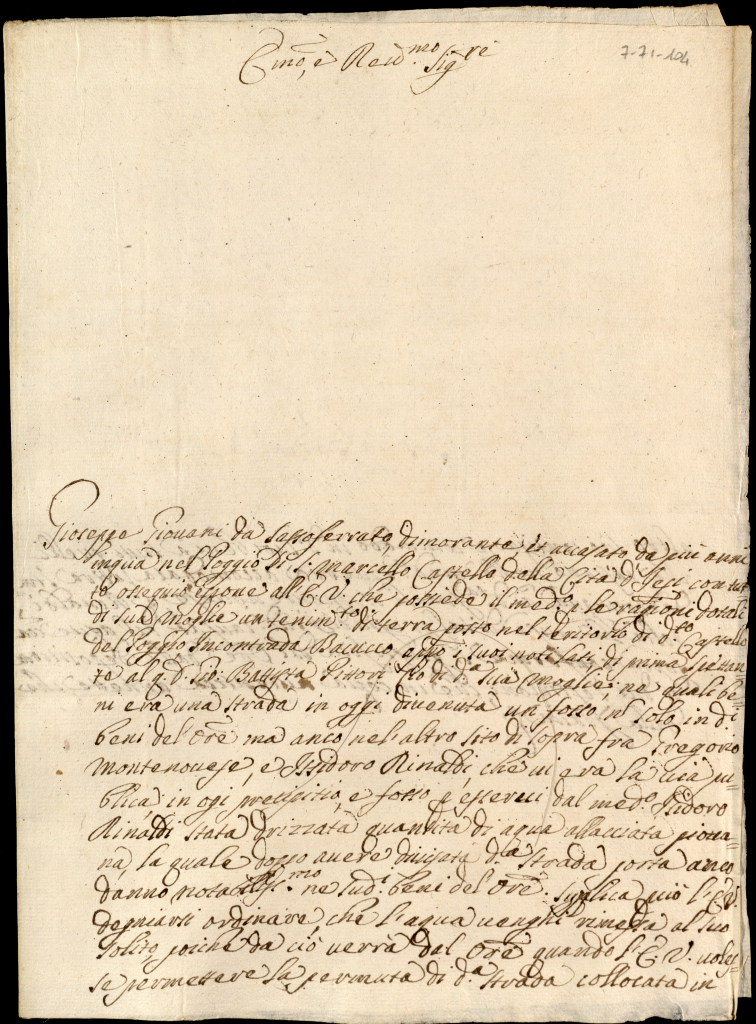 Emo, e Reud.mo Sig.re
7-71-104
Gioseppe Giouani da Sassoferrato, dimorante et accasato da più anni
inquà nel Poggio di S. Marcello Castello della Città d'Iesi con tut
to ossequio espone all'E.V. che possiede il med.o p le ragioni dotali
di sua moglie un tenim.to di terra posto nel teritorio di d.to Castello
del Poggio Incontrada Bacucco, apò i suoi noti lati, di prima spettan
te al q. D. Gio: Battista Pittori Zio di d.a sua moglie, ne quali be
ni era una strada in oggi divenuta un fosso nō solo in d.i
beni del'Ore ma anco nel'altro sito di sopra fra Gregorio
Montenouese, e Issidoro Rinaldi che ui era la uia pu
blica in ogi precipitio, e fosso p esserui dal med.o Isidoro
Rinaldi stata drizzata quantità di aqua allacciata pioua-
na, la quale doppo auere diuisata d.a strada porta anco
danno notabiliss.mo ne sud.i beni del'Ore. Suplica p ciò l'E.V.
degniarsi ordinare, che l'aqua uenghi rimessa al suo
solito, poiche da ciò uerrà dal'Ore quando l'E.V. uoles-
se permettere la permuta di d.a strada collocata in